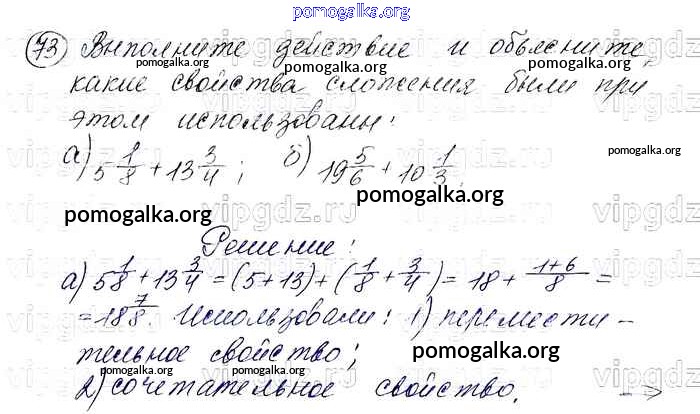 pomogalka.org
73 Выполните действие и объясните,
pomogalka.org pomogalka.org
какие свойства сложения были при
этом использованы:
pomogalka.org
а) 5 1/8 + 13 3/4; б) 19 5/6 + 10 1/3.
pomogalka.org pomogalka.org
Решение:
а) 5 1/8 + 13 3/4 = (5+13)+(1/8 + 3/4) = 18 + (1+6)/8 =
= 18 7/8. Использовали: 1) перемести-
тельное свойство;
pomogalka.org pomogalka.org pomogalka.org
2) сочетательное свойство. →
vipgdz.ru